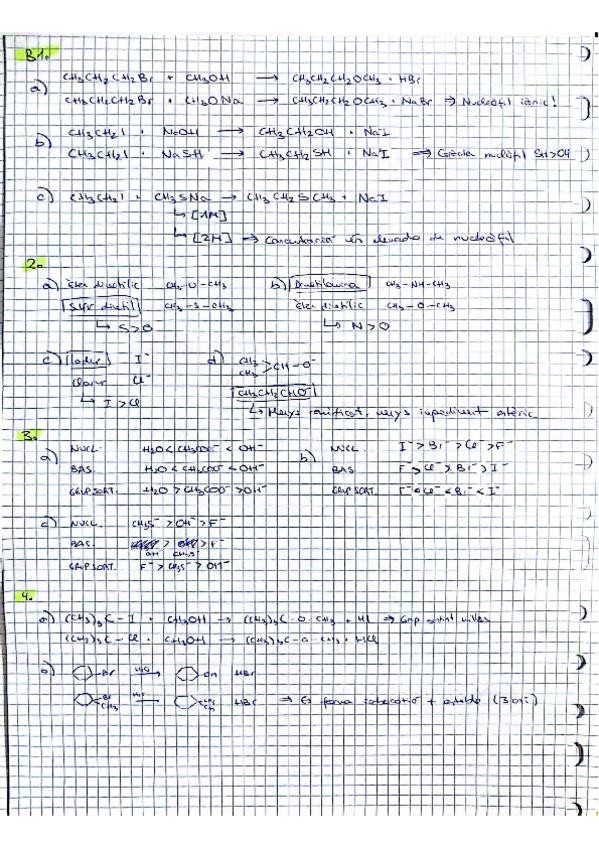 B1.
a) CH3CH2CH2Br + CH3OH → CH3CH2CH2OCH3 + HBr
CH3CH2CH2Br + CH3ONa → CH3CH2CH2OCH3 + NaBr ⇒ Nucleòfil iònic!
b) CH3CH2I + NaOH → CH3CH2OH + NaI
CH3CH2I + NaSH → CH3CH2SH + NaI ⇒ nucleòfil SH>OH
c) CH3CH2I + CH3SNa → CH3CH2SCH3 + NaI
↳ [1M]
↳ [2M] → Concentració més elevada de nucleòfil
2.
a) Èter dimetílic CH3-O-CH3 b) Dimetilamina CH3-NH-CH3
CH3-S-CH3 Èter dimetílic CH3-O-CH3
↳ S>O ↳ N>O
c) Iodur I⁻ d) CH3 CH3 >CH-O⁻
Clorur Cl⁻ CH3CH2CH2O⁻
↳ I>Cl ↳ Menys ramificat, menys impediment estèric
3.
a) NUCL. H2O < CH3COO⁻ < OH⁻ b) NUCL. I⁻ > Br⁻ > Cl⁻ > F⁻
BAS. H2O < CH3COO⁻ < OH⁻ BAS F⁻ > Cl⁻ > Br⁻ > I⁻
GRUP SORT. H2O > CH3COO⁻ > OH⁻ GRUP SORT. F⁻ < Cl⁻ < Br⁻ < I⁻
c) NUCL. CH3S⁻ > OH⁻ > F⁻
BAS. > > F⁻
OH CH3S⁻
GRUP SORT. F⁻ > CH3S⁻ > OH⁻
4.
a) (CH3)3C-I + CH3OH → (CH3)3C-O-CH3 + HI ⇒ Grup sortint millor
(CH3)3C-Cl + CH3OH → (CH3)3C-O-CH3 + HCl
b) Br H2O → OH HBr
Br CH3 H2O → CH3 OH HBr ⇒ Es forma carbocatió + estable (3ari)